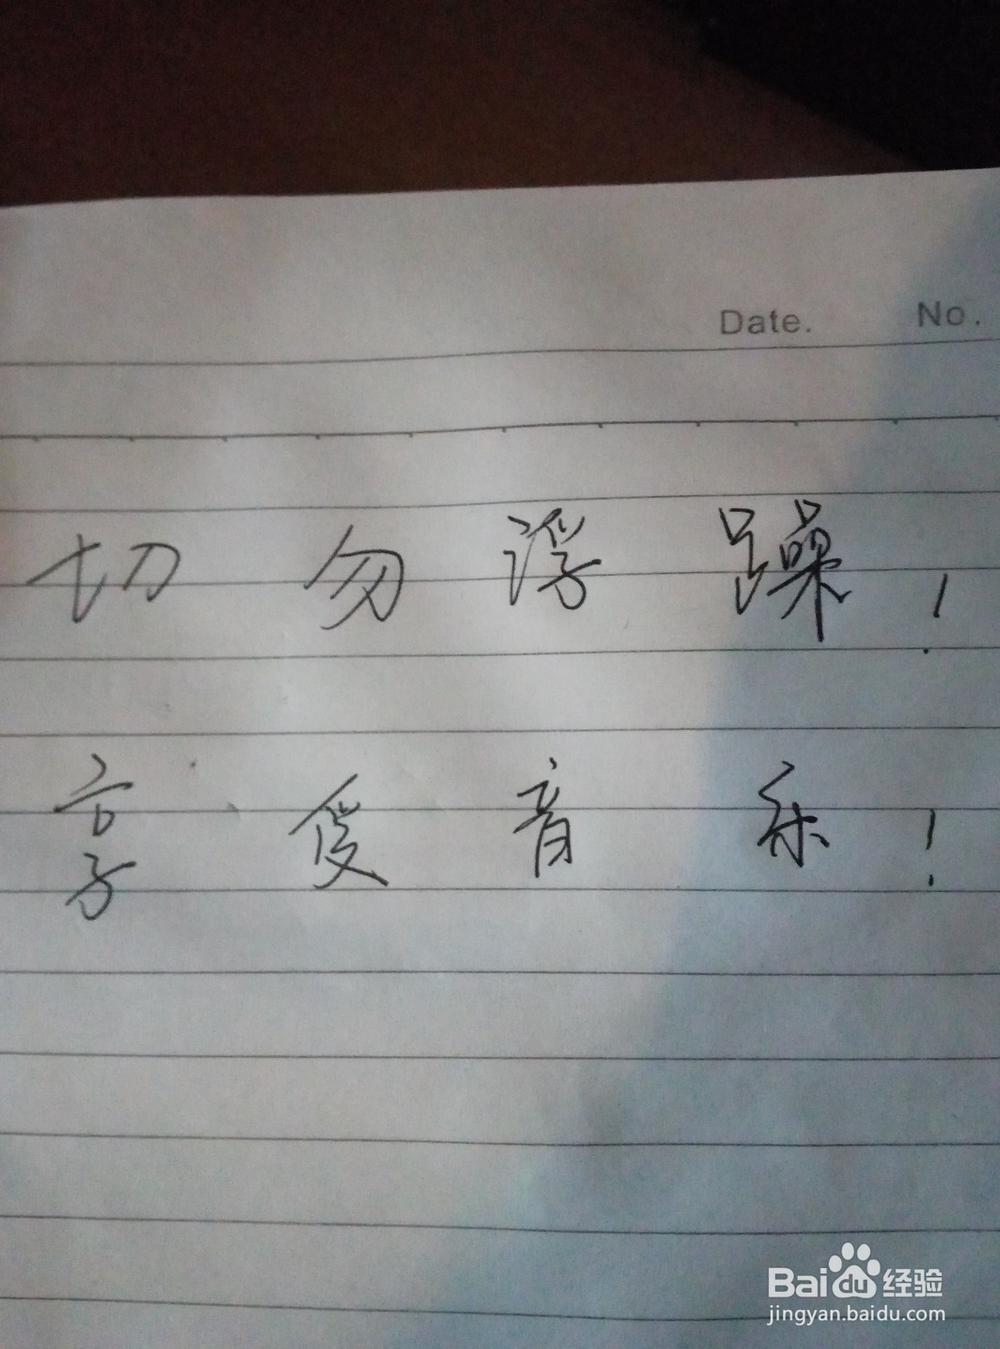 Date. No.
切勿浮躁!
享受音乐!
Bai du 经验
jingyan.baidu.com